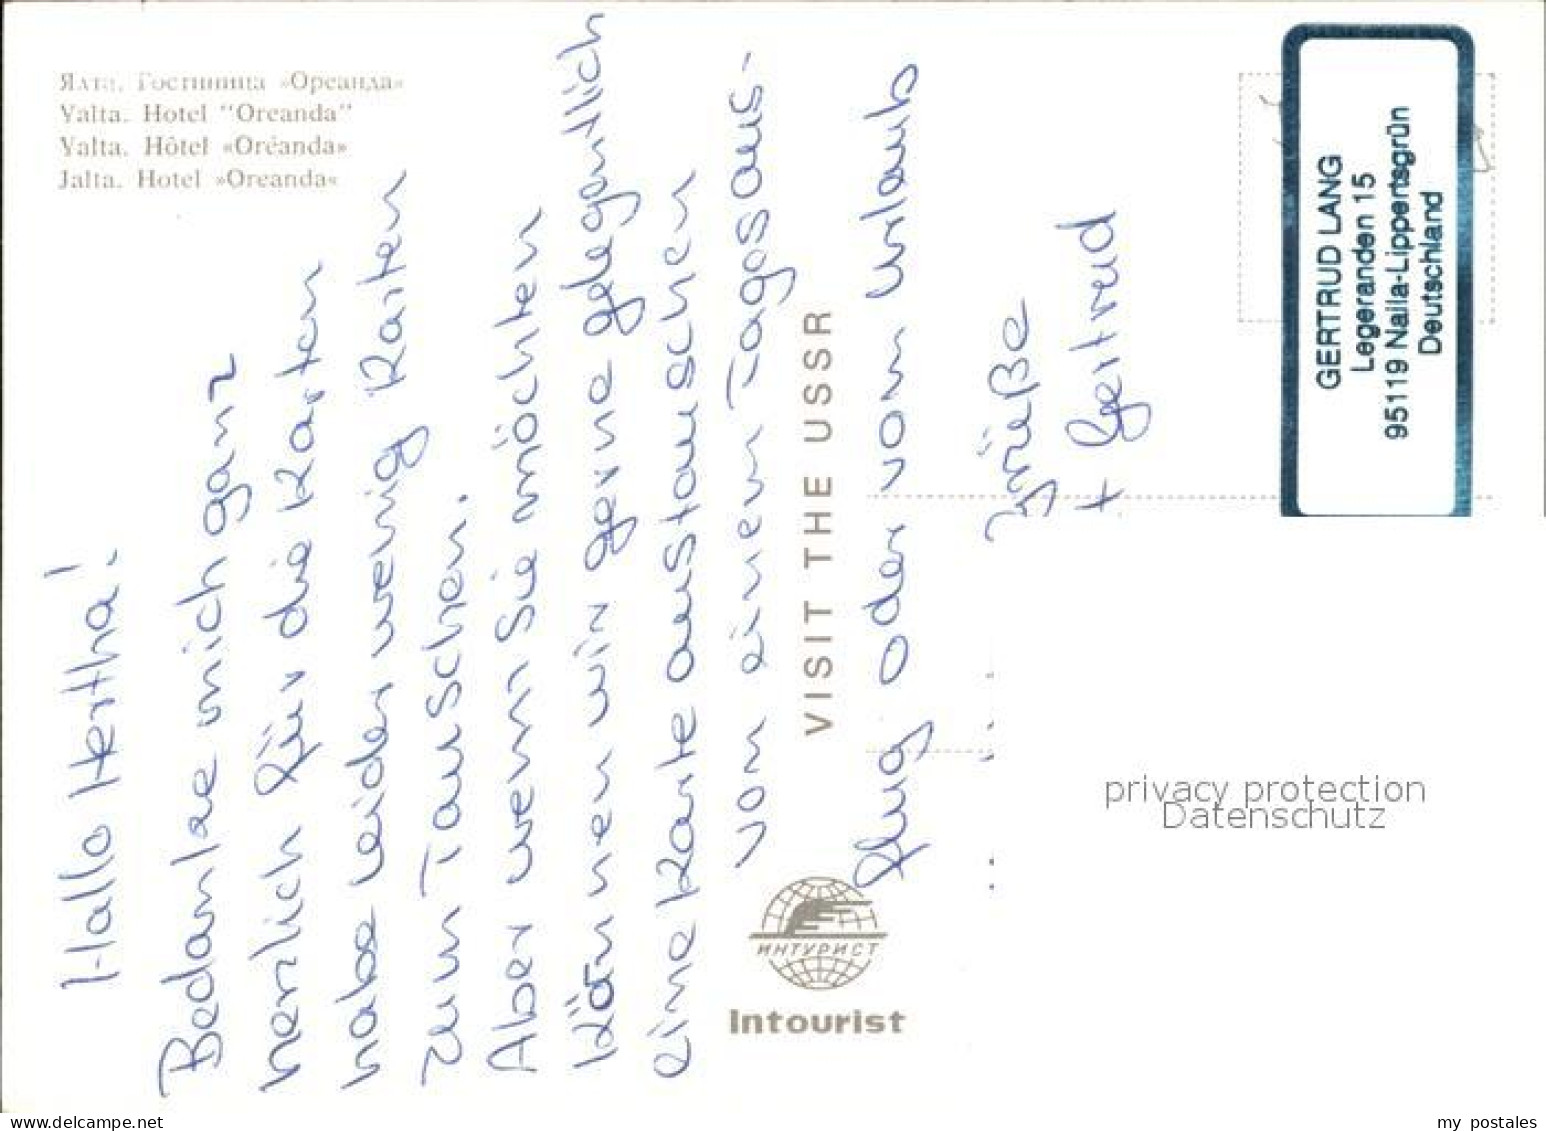 Ялта. Гостиница «Ореанда»
Yalta. Hotel "Oreanda"
Yalta. Hôtel «Oréanda»
Jalta. Hotel »Oreanda«
Hallo Hertha!
Bedanke mich ganz
herzlich für die Karten
habe leider wenig Karten
zum Tauschen.
Aber wenn Sie möchten
können wir gerne gelegentlich
eine Karte austauschen
von einem Tagesaus-
flug oder vom Urlaub
Grüße
+ Gertrud
VISIT THE USSR
ИНТУРИСТ
Intourist
GERTRUD LANG
Legeranden 15
95119 Naila-Lippertsgrün
Deutschland
privacy protection
Datenschutz
www.delcampe.net
my_postales